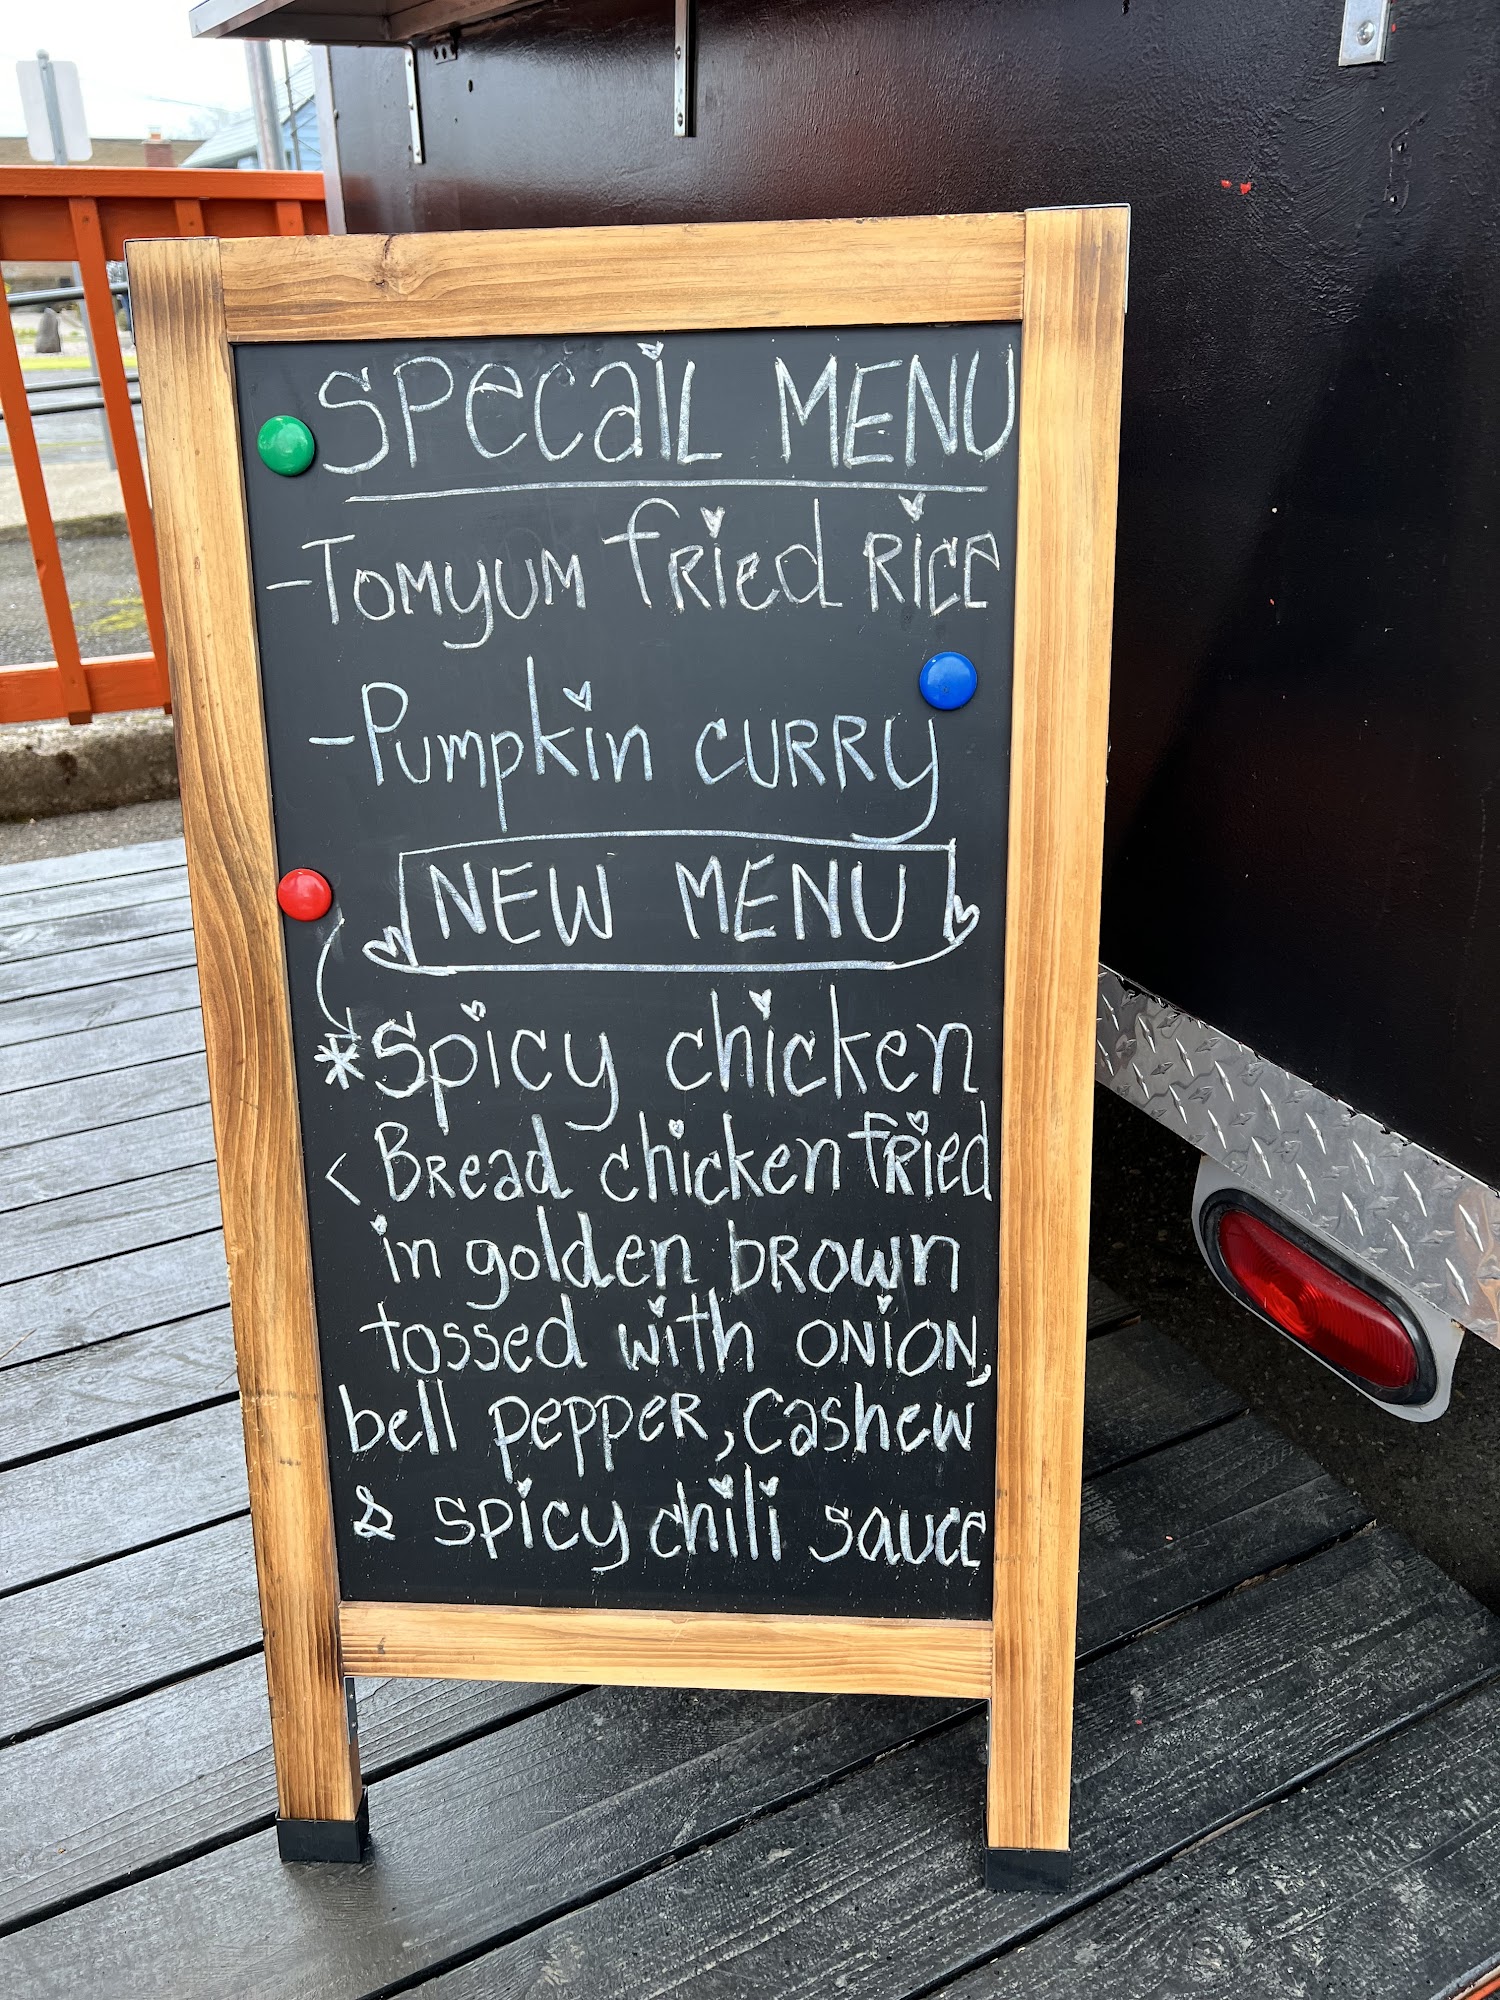 SPecaiL MENU
-Tomyum fried Rice
-Pumpkin curry
NEW MENU
*Spicy chicken
< Bread chicken fried
in golden brown
tossed with onion,
bell pepper, Cashew
& spicy chili sauce